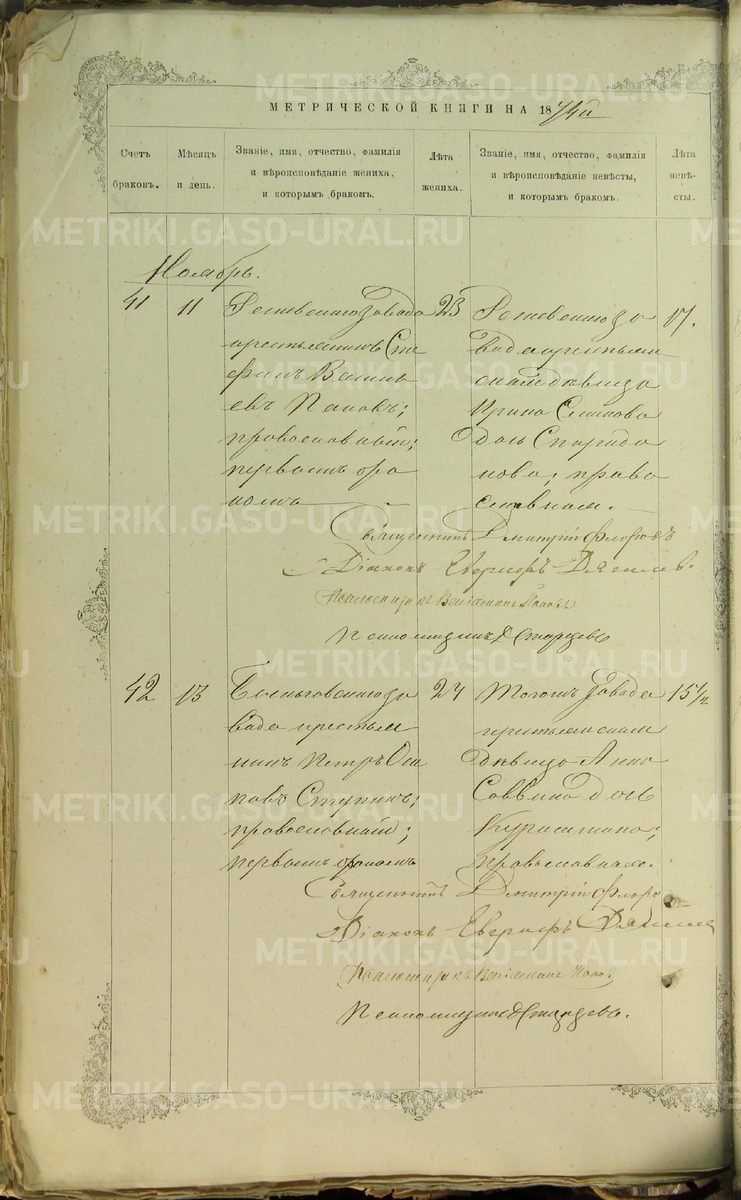 МЕТРИЧЕСКОЙ КНИГИ НА 1874й
Счетъ браковъ.
Мѣсяцъ и день.
Званіе, имя, отчество, фамилія
и вѣроисповѣданіе жениха,
и которымъ бракомъ.
Лѣта жениха.
Званіе, имя, отчество, фамилія
и вѣроисповѣданіе невѣсты,
и которымъ бракомъ.
Лѣта невѣ-
сты.
Ноябрь.
41 11
Завода
крестьянинъ Сте
фанъ Василь
евъ Поповъ;
православный;
первымъ бра
комъ
23
за
вода крестьян
ская дѣвица
Ирина Симонова
дочь Спиридо
нова; право
славная.
17.
Священникъ Димитрій Флоровъ
Діаконъ Евграфъ
Псаломщикъ Веніаминъ Поповъ
Псаломщикъ Старцевъ
42 13
за
вода крестья
нинъ Петръ Оси
повъ Ступинъ;
православный;
первымъ бракомъ
24
Того жъ Завода
крестьянская
дѣвица Анна
Саввина дочь
православная.
15½
Священникъ Димитрій Флоро
Діаконъ Евграфъ
Псаломщикъ Веніаминъ Попо.
Псаломщикъ Старцевъ.
METRIKI.GASO-URAL.RU